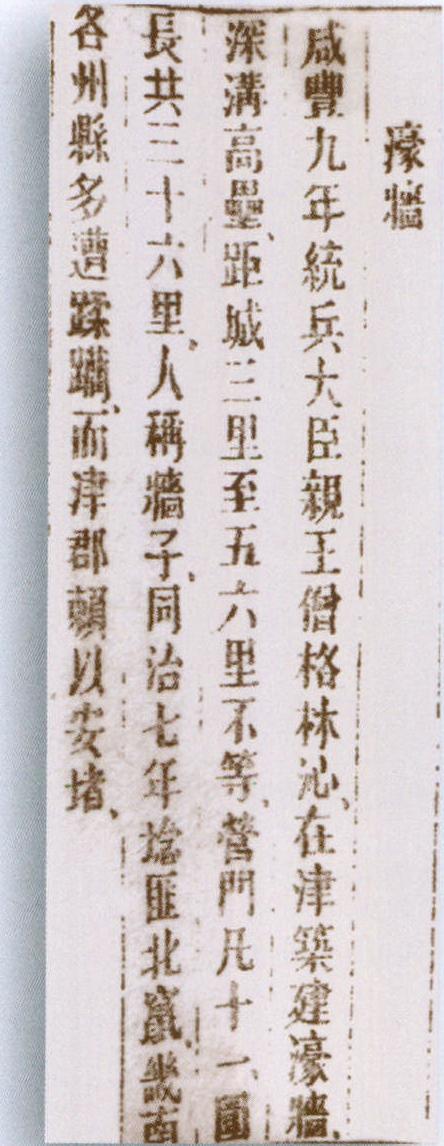 濠牆
咸豐九年統兵大臣親王僧格林沁、在津築建濠牆、
深溝高壘、距城三里至五六里不等、營門凡十一、圍
長共三十六里、人稱牆子、同治七年捻匪北竄、畿南
各州縣多遭蹂躪、而津郡賴以安堵、